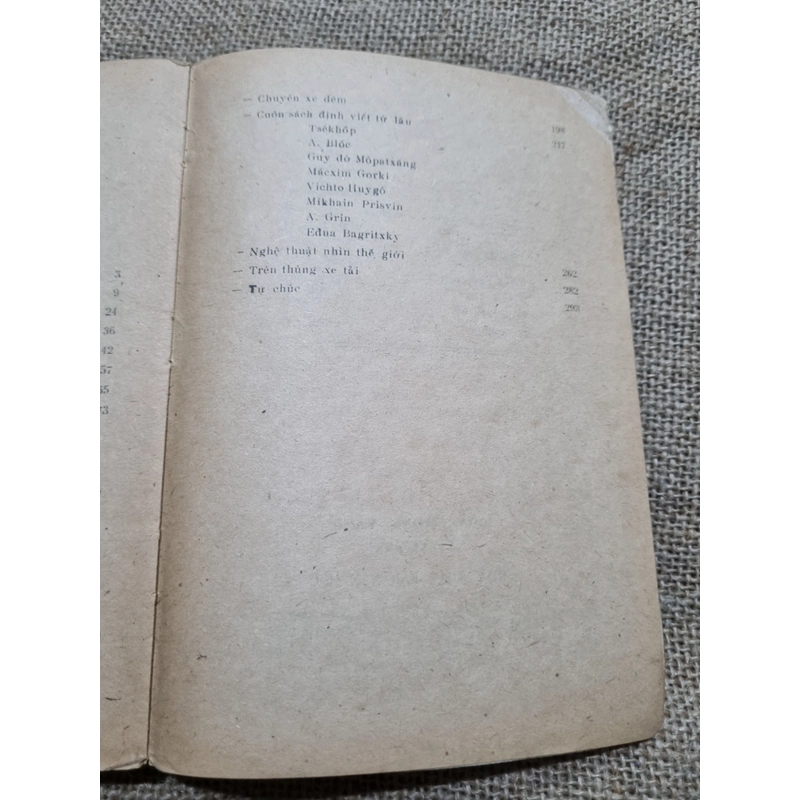 3
9
24
36
42
57
65
73
— Chuyến xe đêm 198
— Cuốn sách định viết từ lâu 217
Tsêkhốp
A. Blốc
Guy đờ Môpatxăng
Mácxim Gorki
Víchto Huygô
Mikhain Prisvin
A. Grin
Eđua Bagritxky
— Nghệ thuật nhìn thế giới 262
— Trên thùng xe tải 282
— Tự chúc 293